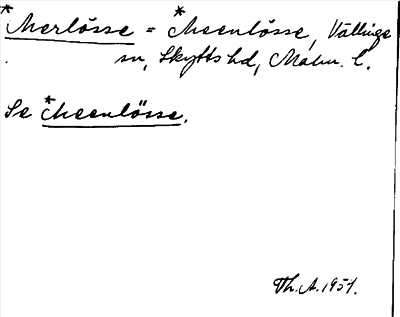 *Merlösse = *Meenlösse, Vällinge
sn, Skytts hd, Malm. l.
Se *Meenlösse.
Th. A. 1951.